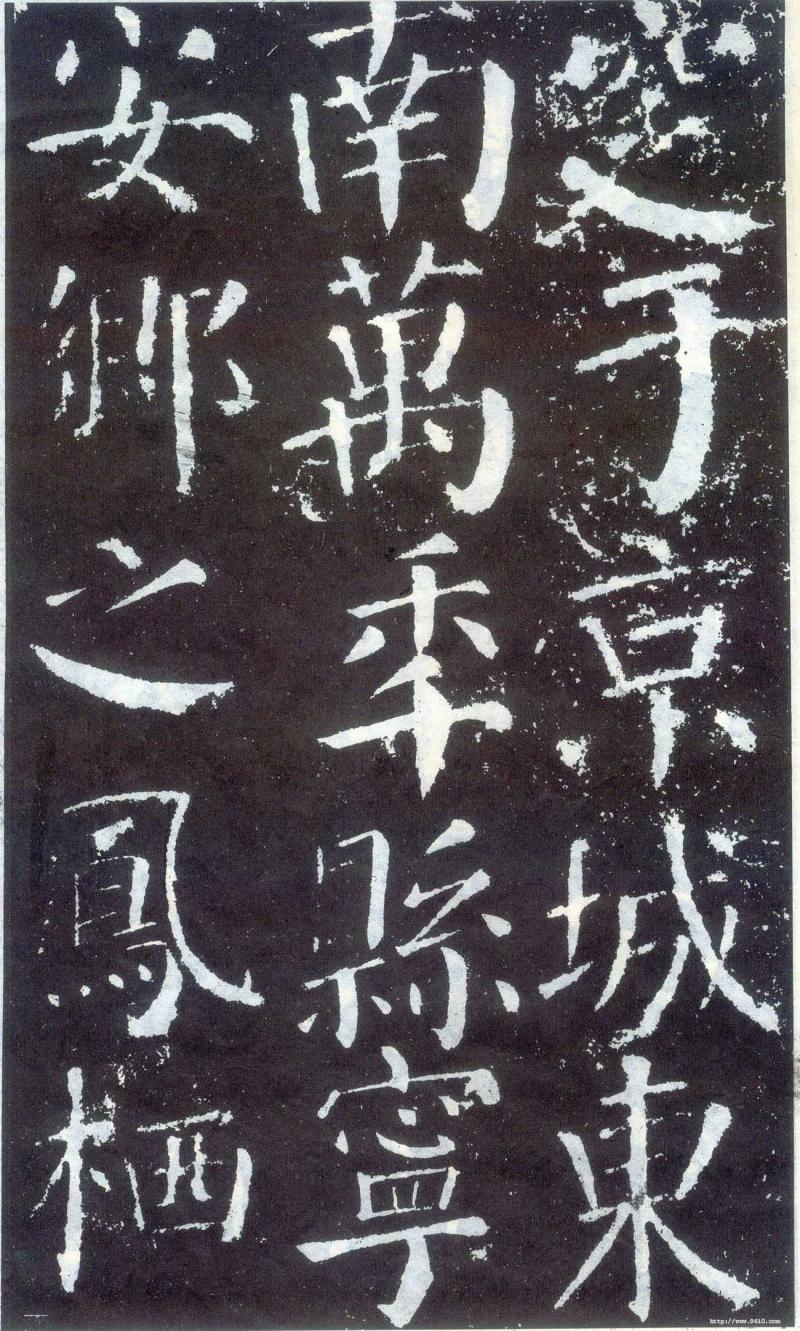 窆于京城東
南萬秊縣寧
安鄉之鳳栖
http://www.9610.com